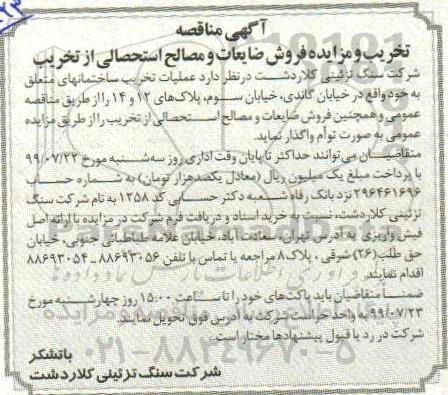 آگهی مناقصه
تخریب و مزایده فروش ضایعات و مصالح استحصالی از تخریب
شرکت سنگ تزئینی کلاردشت در نظر دارد عملیات تخریب ساختمانهای متعلق
به خود واقع در خیابان گاندی، خیابان سوم، پلاک‌های ۱۲ و ۱۴ را از طریق مناقصه
عمومی و همچنین فروش ضایعات و مصالح استحصالی از تخریب را از طریق مزایده
عمومی به صورت توأم واگذار نماید.
متقاضیان می‌توانند حداکثر تا پایان وقت اداری روز سه‌شنبه مورخ ۹۹/۰۷/۲۲
با پرداخت مبلغ یک میلیون ریال (معادل یکصدهزار تومان) به شماره حساب
۲۹۶۴۶۱۶۹۶ نزد بانک رفاه شعبه دکتر حسابی کد ۱۲۵۸ به نام شرکت سنگ
تزئینی کلاردشت، نسبت به خرید اسناد و دریافت فرم شرکت در مزایده با ارائه اصل
فیش واریزی به آدرس تهران، سعادت آباد، خیابان علامه طباطبائی جنوبی، خیابان
حق طلب (۲۶) شرقی، پلاک ۸ مراجعه یا تماس با تلفن ۸۸۶۹۳۰۵۶ ـ ۸۸۶۹۳۰۵۴
اقدام نمایند.
ضمناً متقاضیان باید پاکت‌های خود را تا ساعت ۱۵:۰۰ روز چهارشنبه مورخ
۹۹/۰۷/۲۳ به واحد حراست شرکت به آدرس فوق تحویل نمایند.
شرکت در رد یا قبول پیشنهادها مختار است.
باتشکر
شرکت سنگ تزئینی کلاردشت
۰۲۱-۸۸۳۴۹۶۷۰-۵